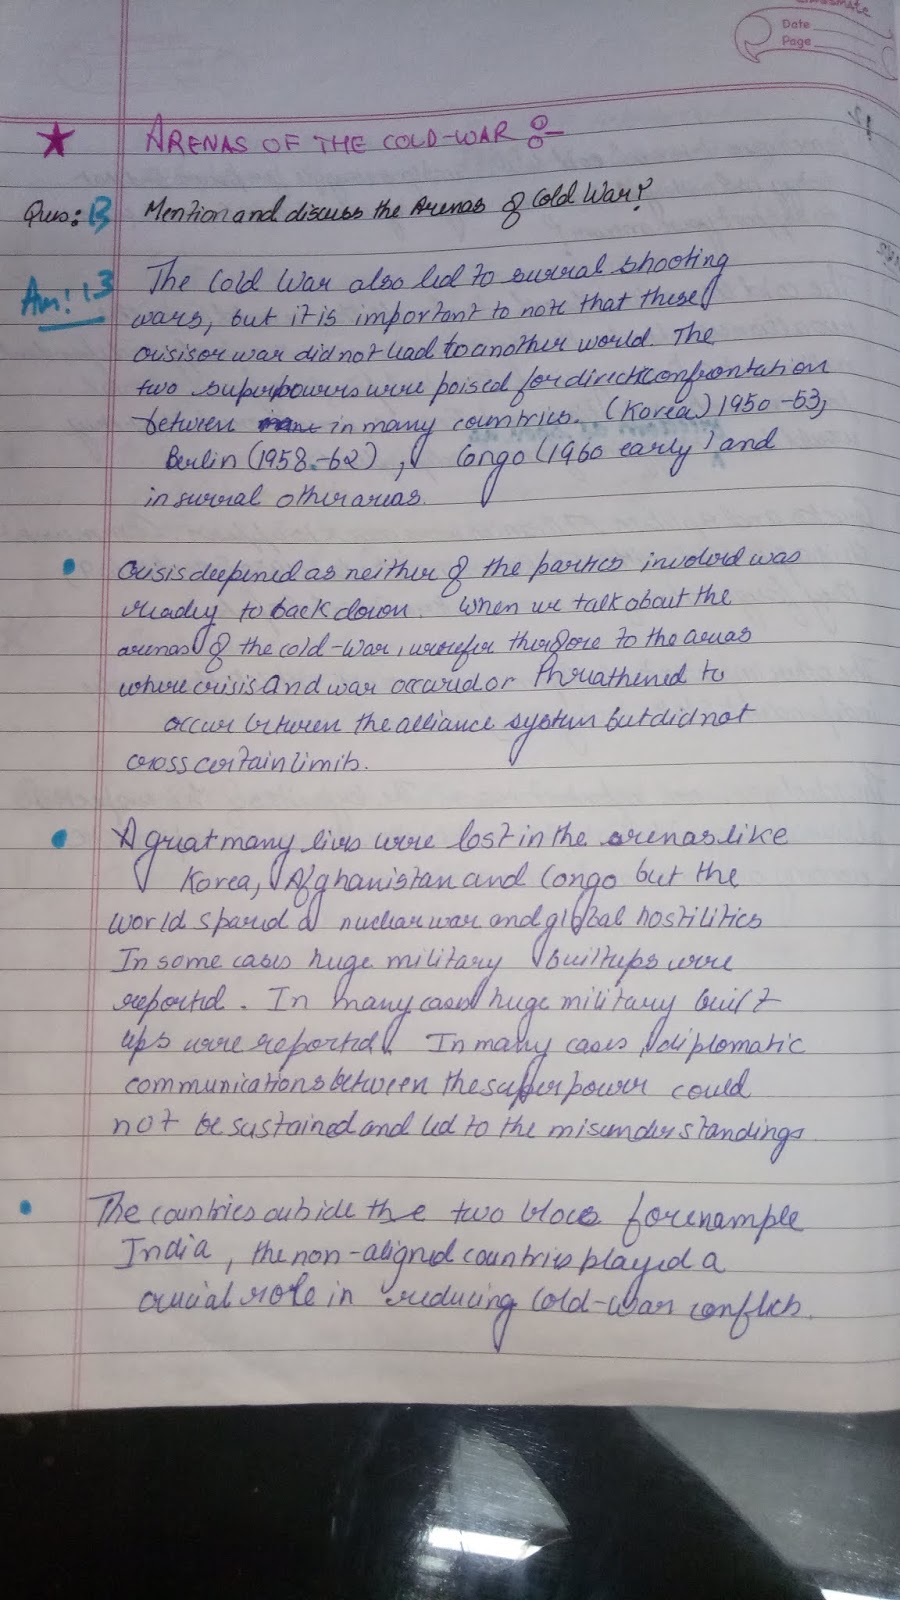 classmate
Date
Page
ARENAS OF THE COLD-WAR :-
Ques: 13 Mention and discuss the Arenas of Cold War?
Ans: 13 The Cold War also led to surral shooting
wars, but it is important to note that these
crisis or war did not lead to another world. The
two superpowers were poised for direct confrontation
between in many countries. (Korea) 1950-53,
Berlin (1958-62), Congo (1960 early) and
in surral other areas.
Crisis deepened as neither of the parties involved was
ready to back down. When we talk about the
arenas of the cold-War, we refer therefore to the areas
where crisis and war occured or thriathened to
occur between the alliance system but did not
cross certain limits.
A great many lives were lost in the arenas like
Korea, Afghanistan and Congo but the
world spared a nuclear war and global hostilities
In some cases huge military builtups were
reported. In many cases huge military built
ups were reported. In many cases, diplomatic
communications between the superpower could
not be sustained and led to the misunderstandings
The countries outside the two blocs for enample
India, the non-aligned countries played a
crucial role in reducing Cold-War conflicts.